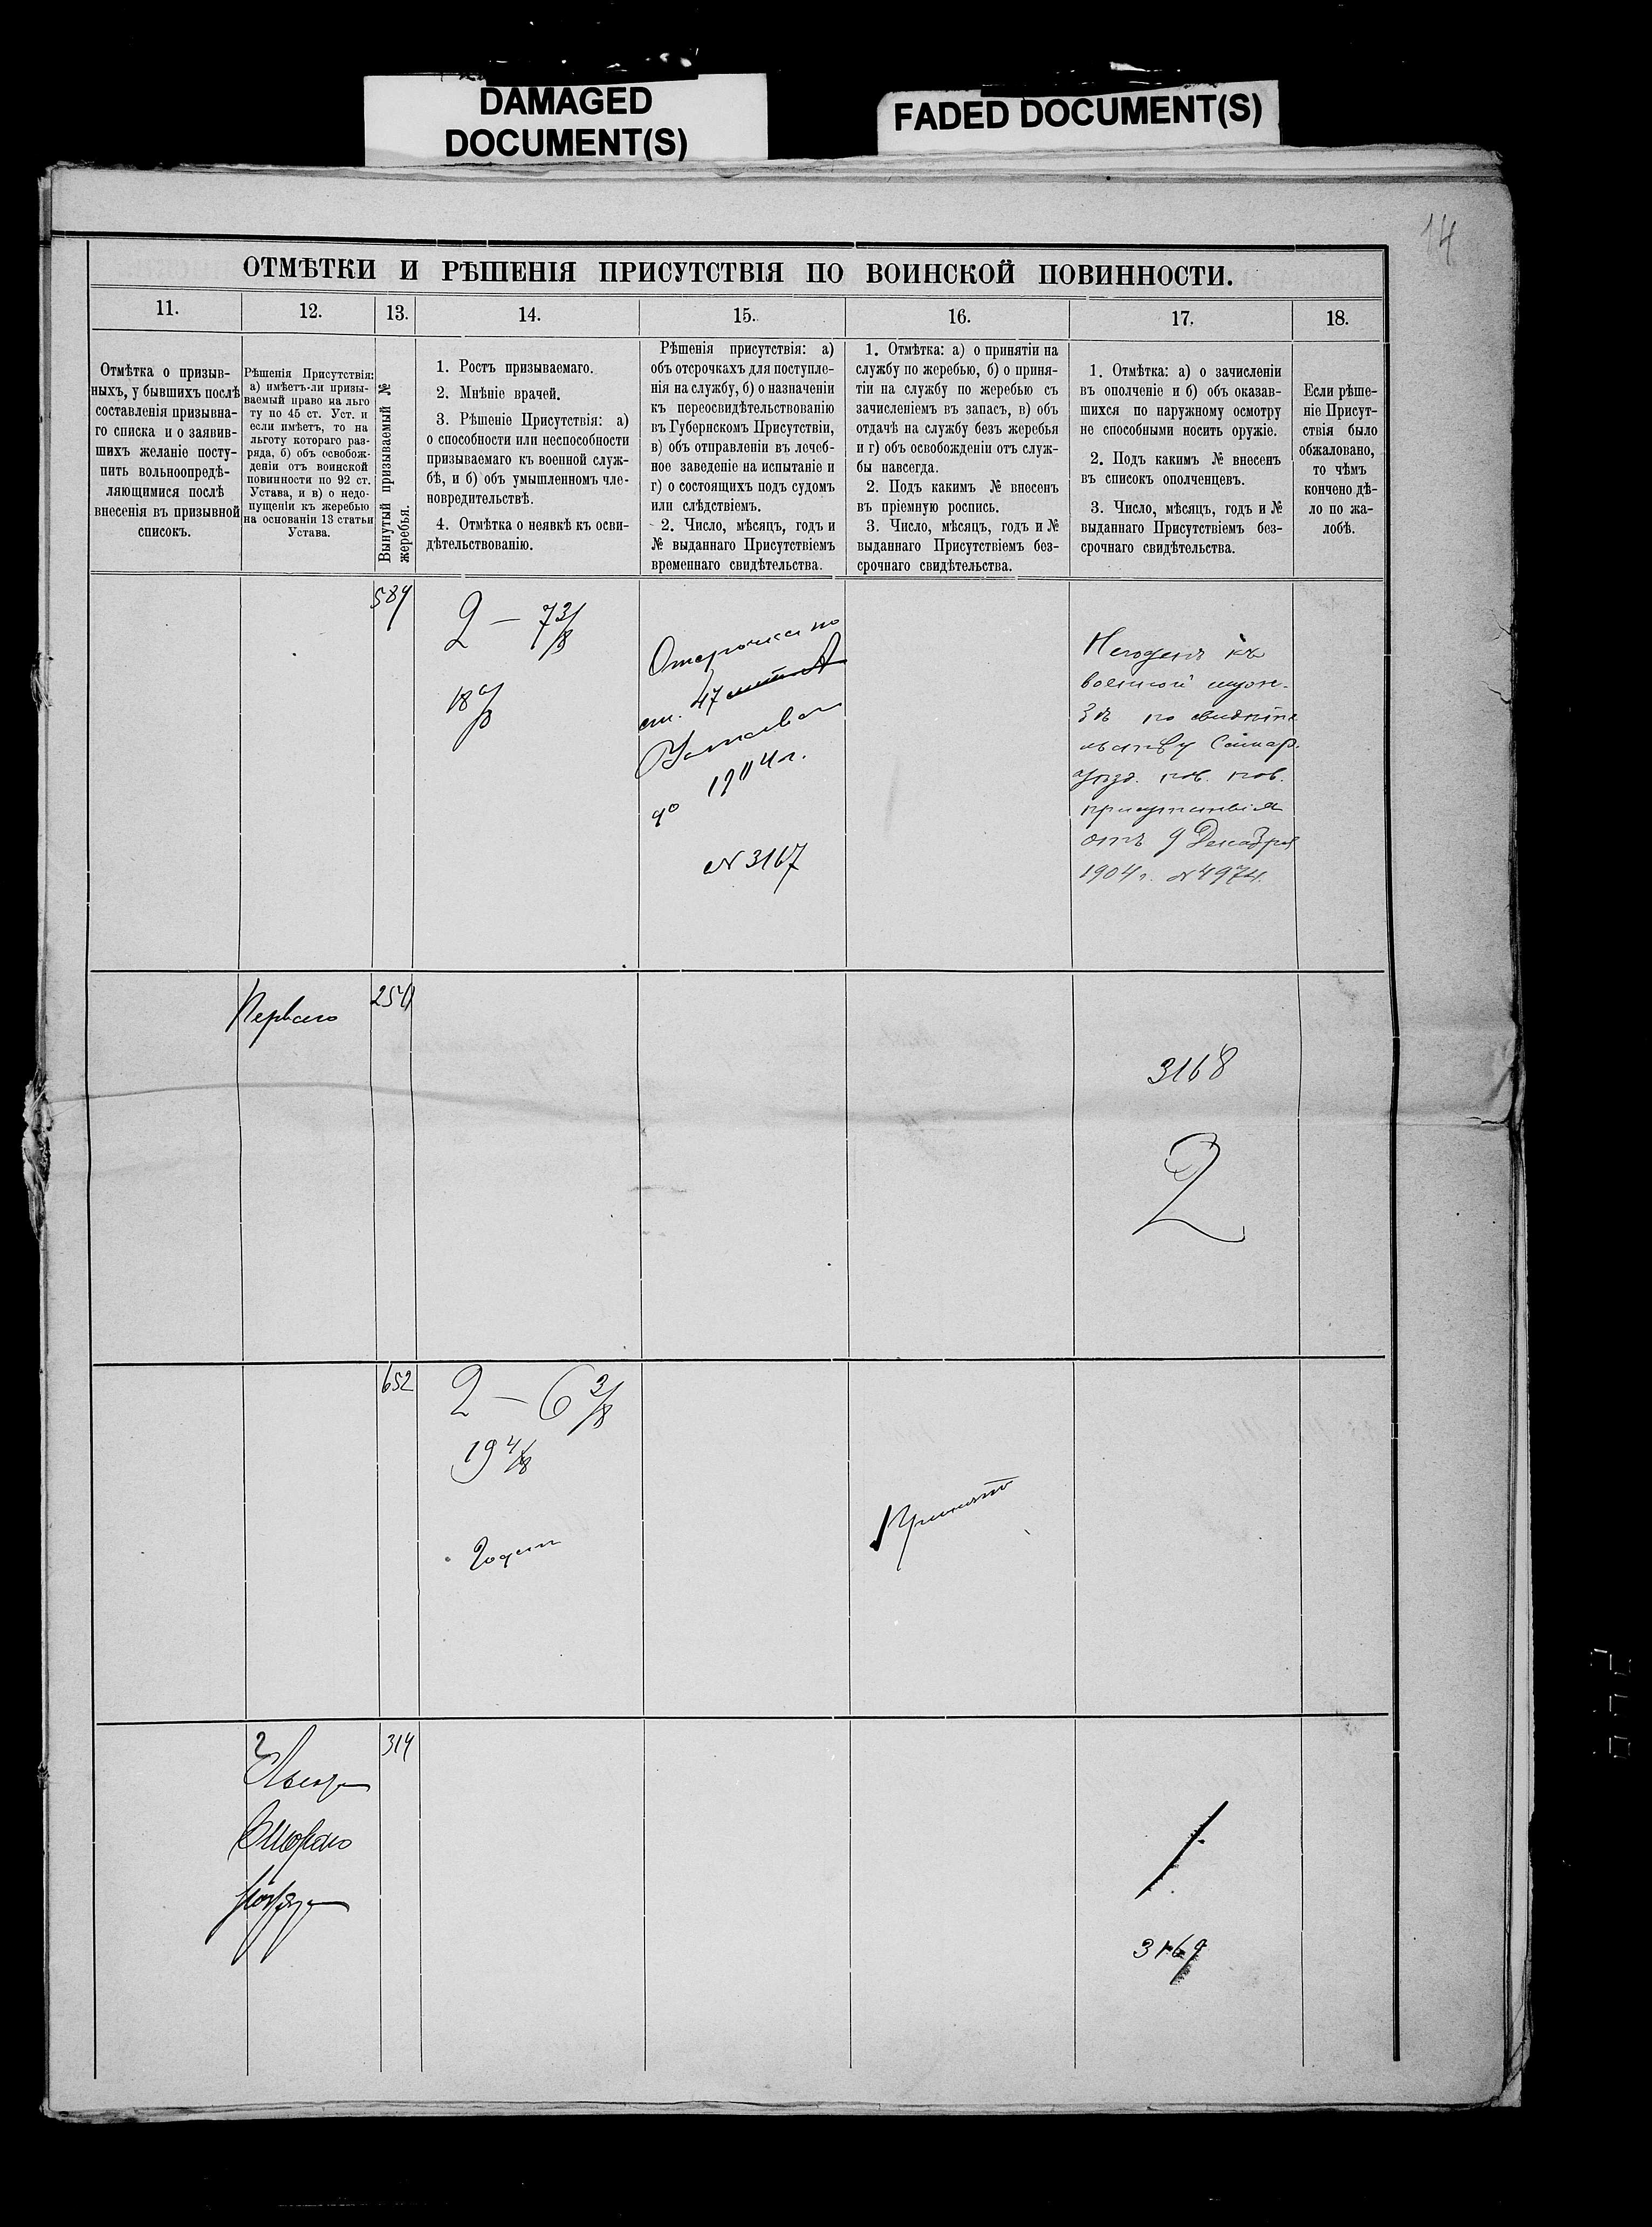 DAMAGED
DOCUMENT(S)
FADED DOCUMENT(S)
14
ОТМѢТКИ И РѢШЕНІЯ ПРИСУТСТВІЯ ПО ВОИНСКОЙ ПОВИННОСТИ.
11.
12.
13.
14.
15.
16.
17.
18.
Отмѣтка о призыв-
ныхъ, у бывшихъ послѣ
составленія призывна-
го списка и о заявив-
шихъ желаніе посту-
пить вольноопредѣ-
ляющимися послѣ
внесенія въ призывной
списокъ.
Рѣшенія Присутствія:
а) имѣетъ-ли призы-
ваемый право на льго
ту по 45 ст. Уст. и
если имѣетъ, то на
льготу котораго раз-
ряда, б) объ освобож-
деніи отъ воинской
повинности по 92 ст.
Устава, и в) о недо-
пущеніи къ жеребью
на основаніи 13 статьи
Устава.
Вынутый призываемый №
жеребья.
1. Ростъ призываемаго.
2. Мнѣніе врачей.
3. Рѣшеніе Присутствія: а)
о способности или неспособности
призываемаго къ военной служ-
бѣ, и б) объ умышленномъ чле-
новредительствѣ.
4. Отмѣтка о неявкѣ къ осви-
дѣтельствованію.
Рѣшенія присутствія: а)
объ отсрочкахъ для поступле-
нія на службу, б) о назначеніи
къ переосвидѣтельствованію
въ Губернскомъ Присутствіи,
в) объ отправленіи въ лечеб-
ное заведеніе на испытаніе и
г) о состоящихъ подъ судомъ
или слѣдствіемъ.
2. Число, мѣсяцъ, годъ и
№ выданнаго Присутствіемъ
временнаго свидѣтельства.
1. Отмѣтка: а) о принятіи на
службу по жеребью, б) о приня-
тіи на службу по жеребью съ
зачисленіемъ въ запасъ, в) объ
отдачѣ на службу безъ жеребья
и г) объ освобожденіи отъ служ-
бы навсегда.
2. Подъ какимъ № внесенъ
въ пріемную роспись.
3. Число, мѣсяцъ, годъ и №
выданнаго Присутствіемъ без-
срочнаго свидѣтельства.
1. Отмѣтка: а) о зачисленіи
въ ополченіе и б) объ оказав-
шихся по наружному осмотру
не способными носить оружіе.
2. Подъ какимъ № внесенъ
въ списокъ ополченцевъ.
3. Число, мѣсяцъ, годъ и №
выданнаго Присутствіемъ без-
срочнаго свидѣтельства.
Если рѣше-
ніе Присут-
ствія было
обжаловано,
то чѣмъ
кончено дѣ-
ло по жа-
лобѣ.
2 — 7 3/8
18
Отсрочка по
ст. 47
Устава
до 1904 г.
№ 3167
Негоденъ къ
военной служ-
бѣ по свидѣте
льству Самар.
уѣзд. по в. пов.
присутствія
отъ 9 Декабря
1904 г. № 4974.
Перваго
3168
2
652
2 — 6 3/8
19 4/8
Годенъ
Принятъ
314
Льгота
Второго
разряда
1
3169